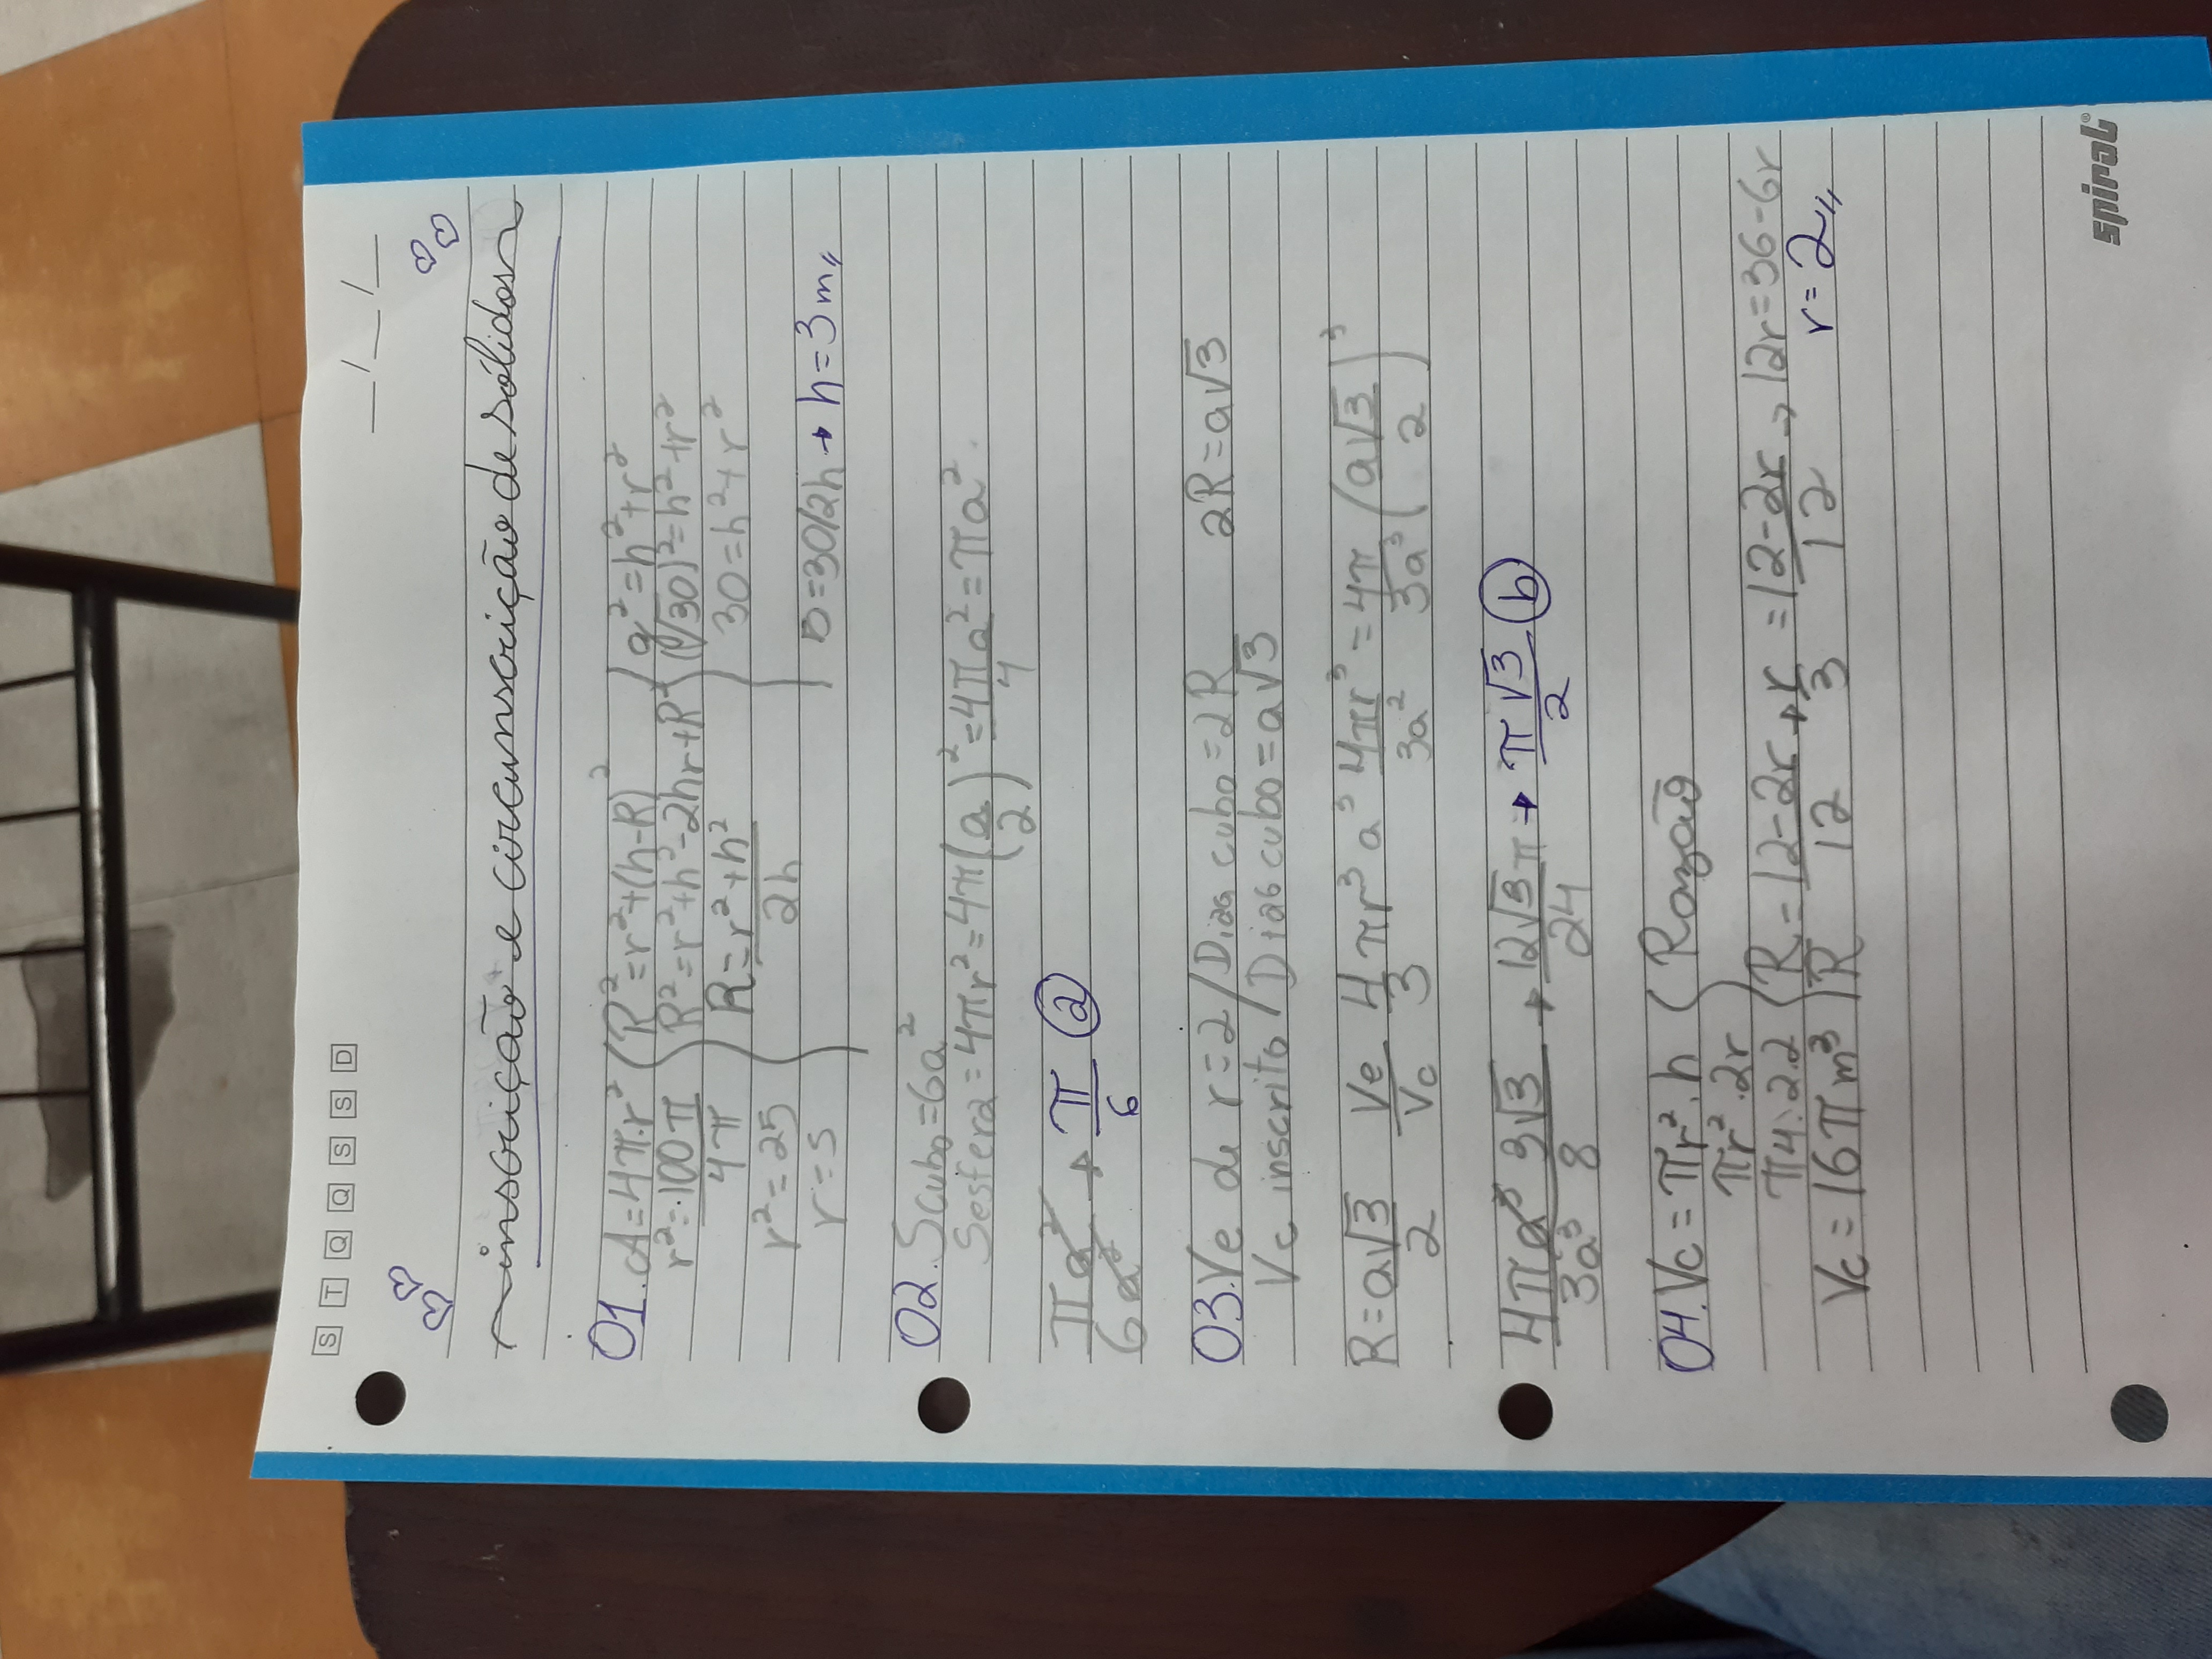 S T Q Q S S D
__/__/__
inscrição e circunscrição de sólidos
01. A=4π.r² R²=r²+(h-R)² a²=h²+r²
r²=100π/4π R²=r²+h²-2hr+R² (√30)²=h²+r²
R=r²+h²/2h 30=h²+r²
r²=25
r=5 5=30/2h → h=3m,,
02. Scubo=6a²
Sesfera=4πr²=4π(a/2)²=4πa²/4=πa².
πa²/6a² → π/6 (a)
03. Ve de r=2/Diag cubo=2R 2R=a√3
Vc inscrito/Diag cubo=a√3
R=a√3/2 Ve/Vc 4/3 πr³ a³ 4πr³/3a² = 4π/3a³ (a√3/2)³
4πa³ 3√3/3a³ 8 → 12√3π/24 → π√3/2 (b)
04. Vc=πr².h (Razão)
πr².2r
π4.2.2 R/R=12-2r/12 → r/3=12-2r/12 → 12r=36-6r
Vc=16πm³ r=2,,
spiral®